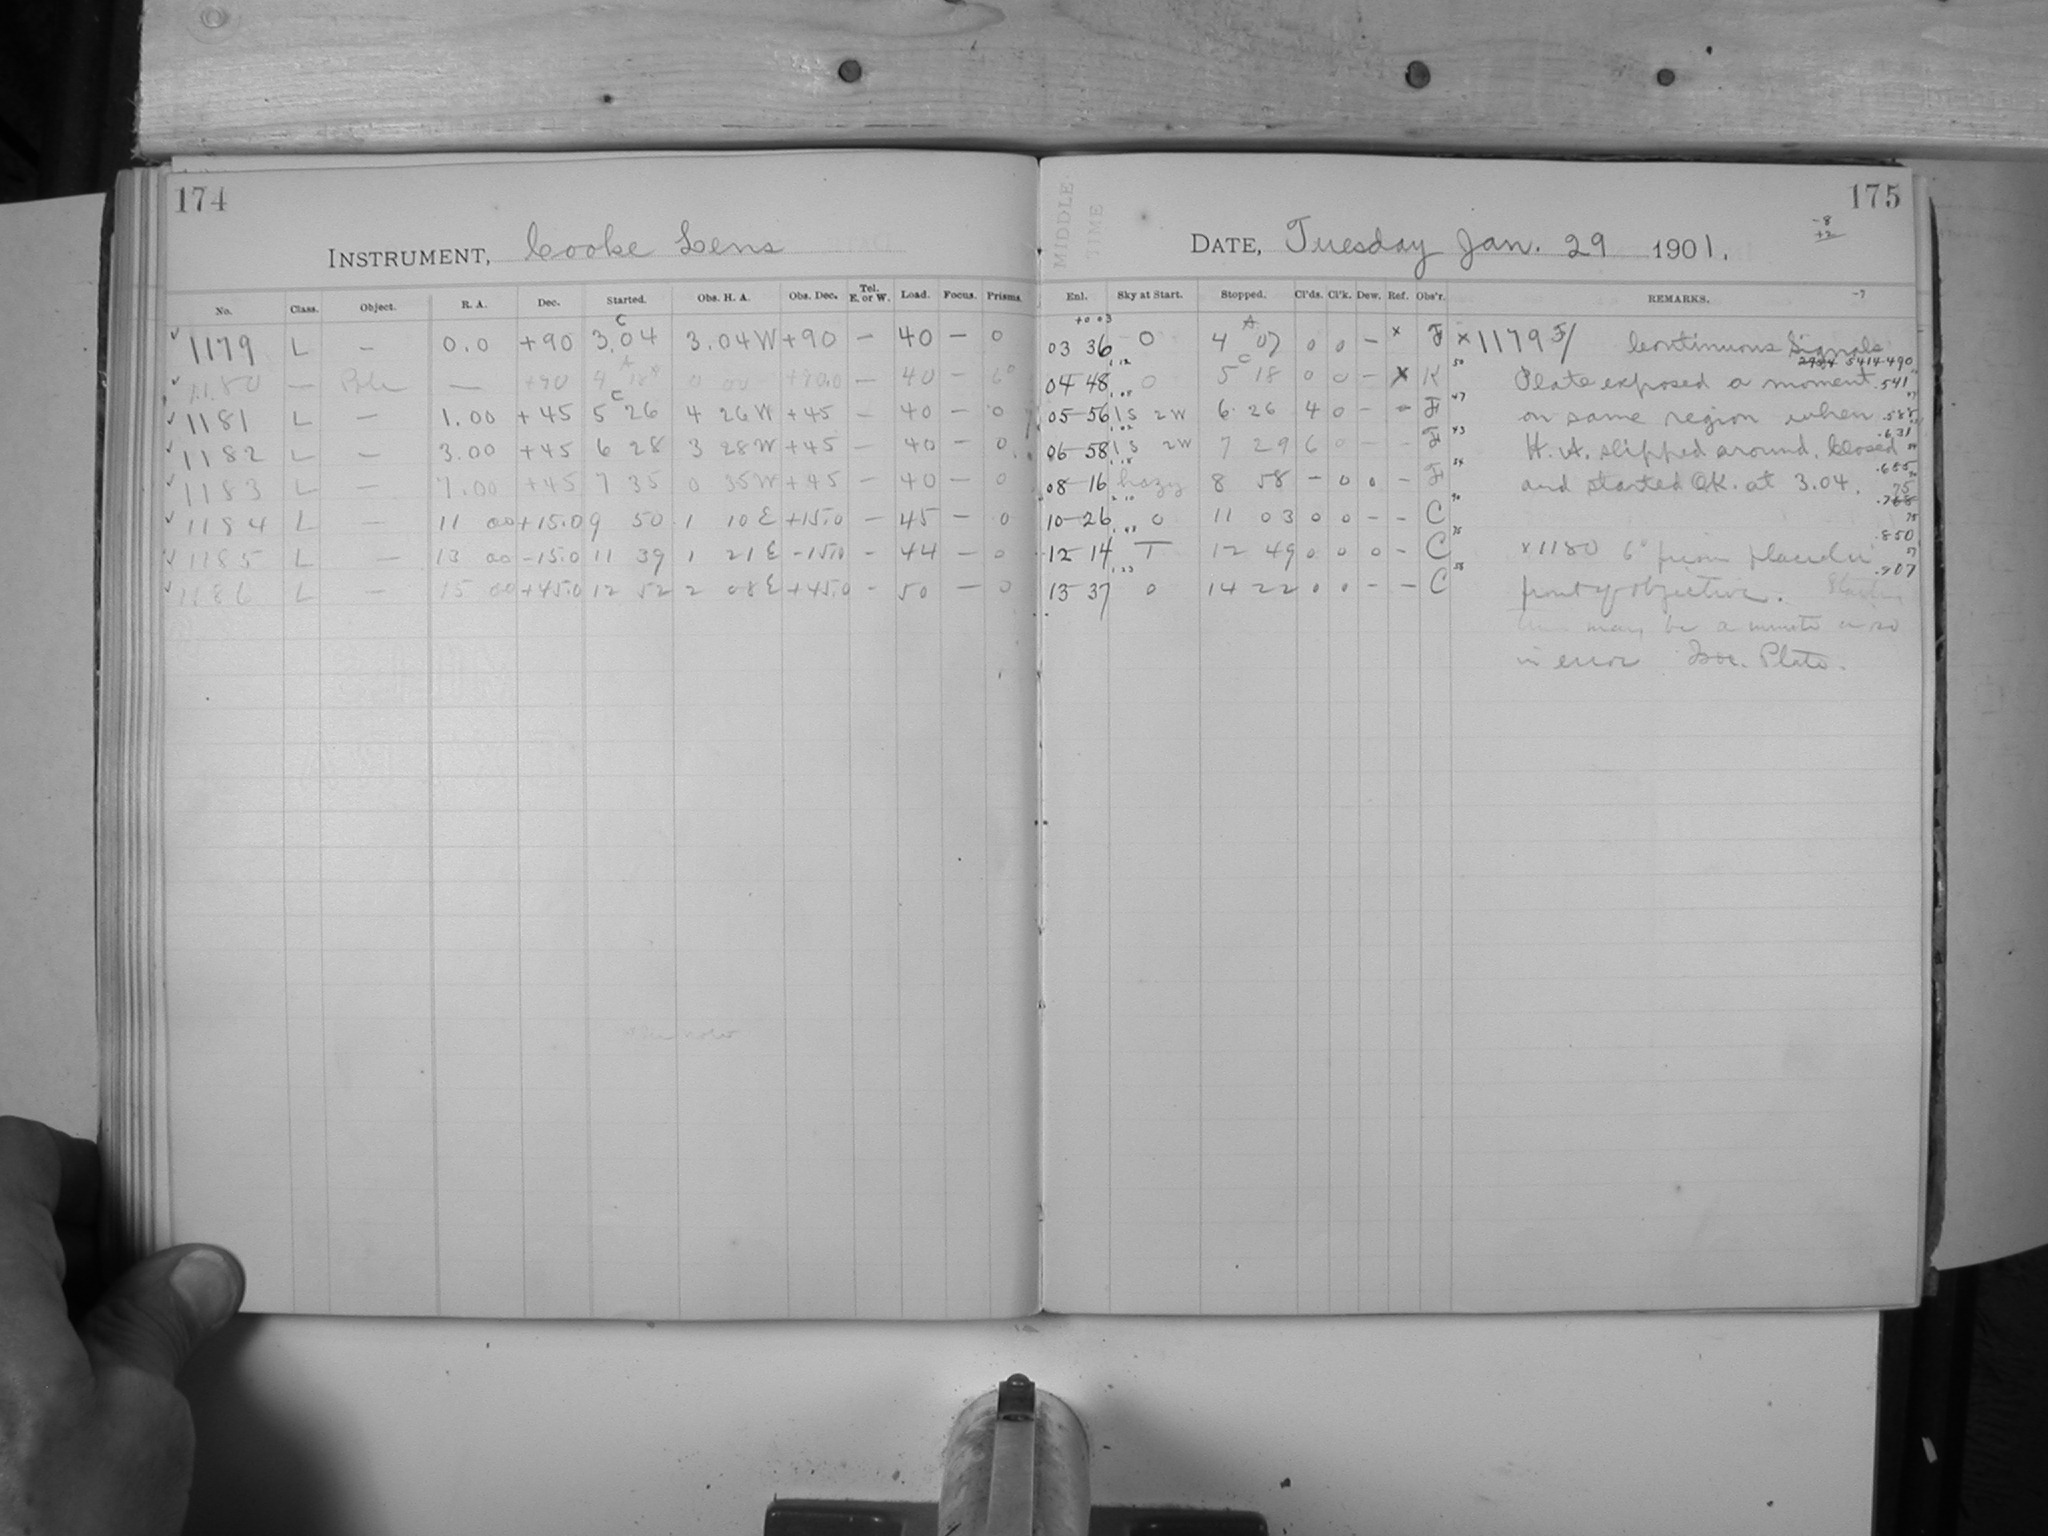 174
INSTRUMENT, Cooke Lens
No. Class. Object. R. A. Dec. Started. Obs. H. A. Obs. Dec. Tel. E. or W. Load. Focus. Prisms.
C
✓ 1179 L — 0.0 +90 3.04 3.04 W +90 — 40 — 0
A
✓ 1180 — Pole — +90 4 18 0 00 +90.0 — 40 — 6°
C
✓ 1181 L — 1.00 +45 5 26 4 26 W +45 — 40 — 0
✓ 1182 L — 3.00 +45 6 28 3 28 W +45 — 40 — 0
✓ 1183 L — 7.00 +45 7 35 0 35 W +45 — 40 — 0
✓ 1184 L — 11 00 +15.0 9 50 1 10 E +15.0 — 45 — 0
✓ 1185 L — 13 00 -15.0 11 39 1 21 E -15.0 - 44 — 0
✓ 1186 L — 15 00 +45.0 12 52 2 08 E +45.0 - 50 — 0
MIDDLE
TIME
175
-8
+2
DATE, Tuesday Jan. 29 1901.
Enl. Sky at Start. Stopped. Cl'ds. Cl'k. Dew. Ref. Obs'r. REMARKS. -7
+0 03
03 36 0 4 07 0 0 — x F x 1179 F/ Continuous Signals
5414.490
04 48 0 5 18 0 0 - x K Plate exposed a moment .541
05 56 1S 2W 6 26 4 0 - - F on same region when .588
06 58 1S 2W 7 29 6 0 - - F H. A. slipped around. Closed .631
08 16 hazy 8 58 - 0 0 - F and started O.K. at 3.04. .685
10 26 0 11 03 0 0 - - C
12 14 T 12 49 0 0 0 - C x 1180 6° prism placed in .850
13 37 0 14 22 0 0 - - C front of objective. .907
may be a minute or so
in error Plate.